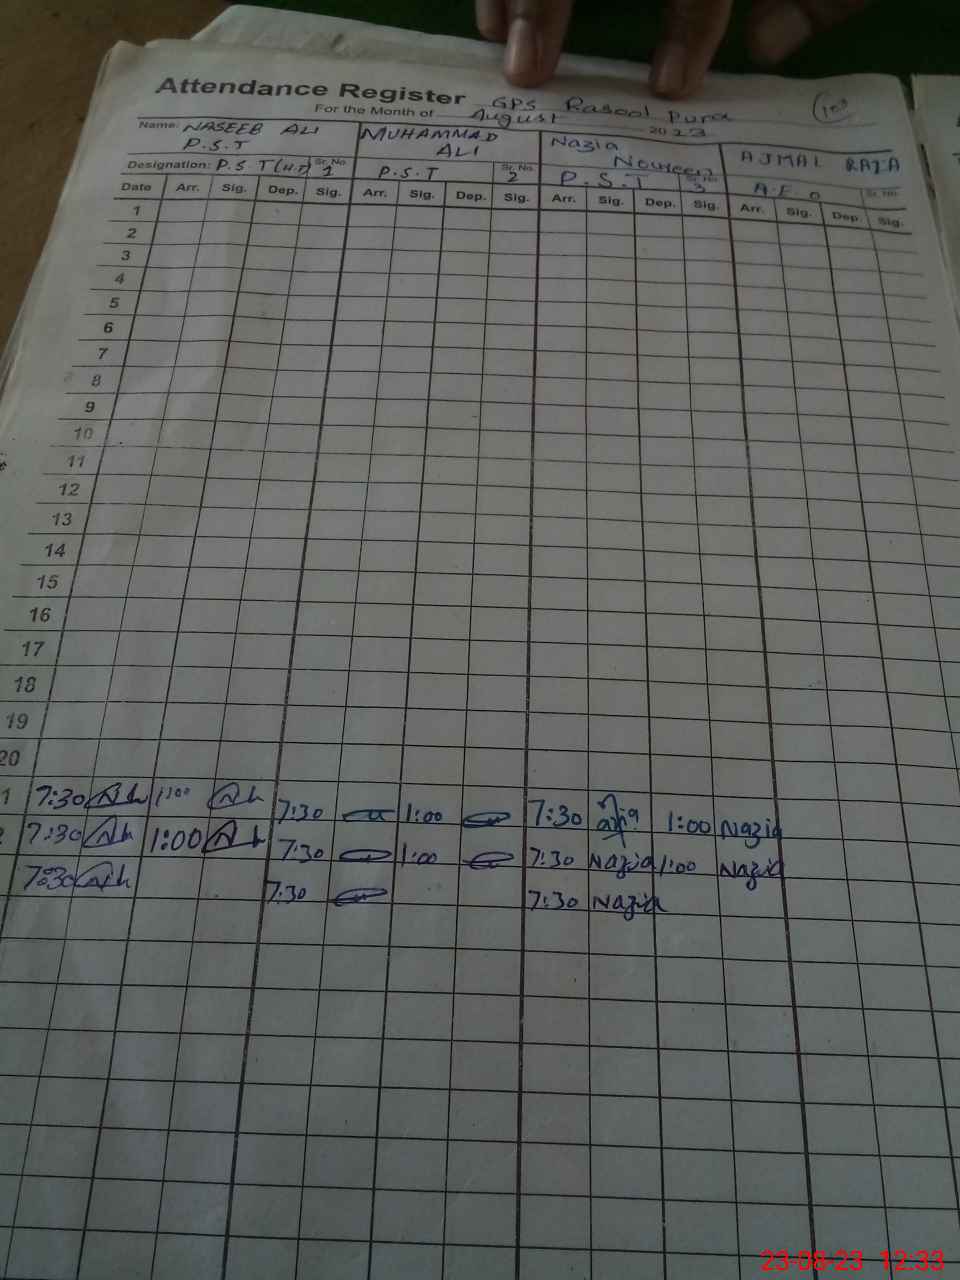 Attendance Register GPS Rasool Pura
For the Month of August 2023
Name: NASEEB ALI MUHAMMAD Nazia AJMAL RAZA
P.S.T ALI Noureen
Designation: P.S.T (H.T) Sr. No. 1 P.S.T Sr. No. 2 P.S.T Sr. No. 3 A.E.O Sr. No.
Date Arr. Sig. Dep. Sig. Arr. Sig. Dep. Sig. Arr. Sig. Dep. Sig. Arr. Sig. Dep. Sig.
1
2
3
4
5
6
7
8
9
10
11
12
13
14
15
16
17
18
19
20
1 7:30 1:00 7:30 1:00 7:30 1:00 Nazia
2 7:30 1:00 7:30 1:00 7:30 Nazia 1:00 Nazia
7:30 7:30 7:30 Nazia
23-08-23 12:33